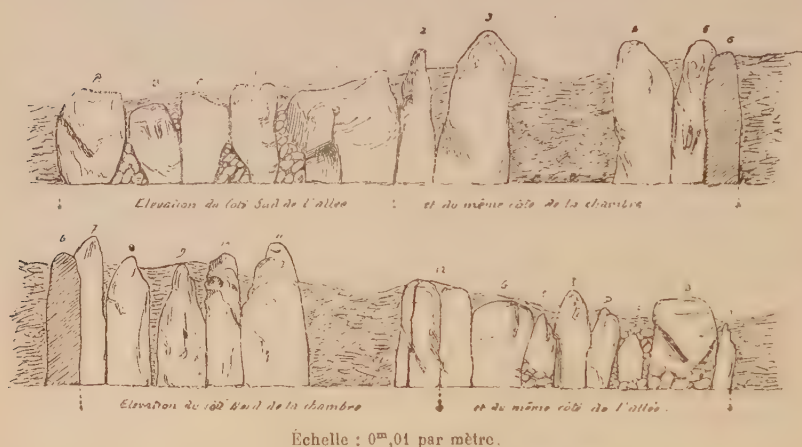 2 3 4 5 6
Elevation du Coté Sud de l'allée et du même côté de la chambre
6 7 8 9 10 11 12
Elevation du côté Nord de la chambre et du même côté de l'allée.
Échelle : 0ᵐ,01 par mètre.